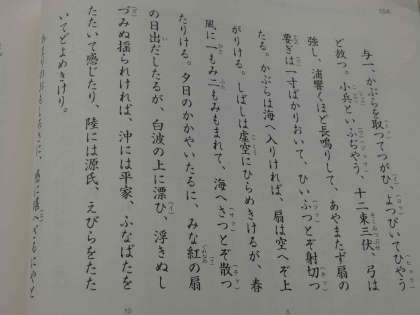 104
与一、かぶらを取つてつがひ、よつぴいてひやう
ど放つ。小兵といふぢやう、十二束三伏、弓は
強し、浦響くほど長鳴りして、あやまたず扇の
要ぎは一寸ばかりおいて、ひいふつとぞ射切つ
たる。かぶらは海へ入りければ、扇は空へぞ上
がりける。しばしは虚空にひらめきけるが、春
風に一もみ二もみもまれて、海へさつとぞ散つ
たりける。夕日のかかやいたるに、みな紅の扇
の日出だしたるが、白波の上に漂ひ、浮きぬし
づみぬ揺られければ、沖には平家、ふなばたを
たたいて感じたり、陸には源氏、えびらをたた
いてどよめきけり。
あまりのおもしろさに、感に堪へざるにやと
5
10